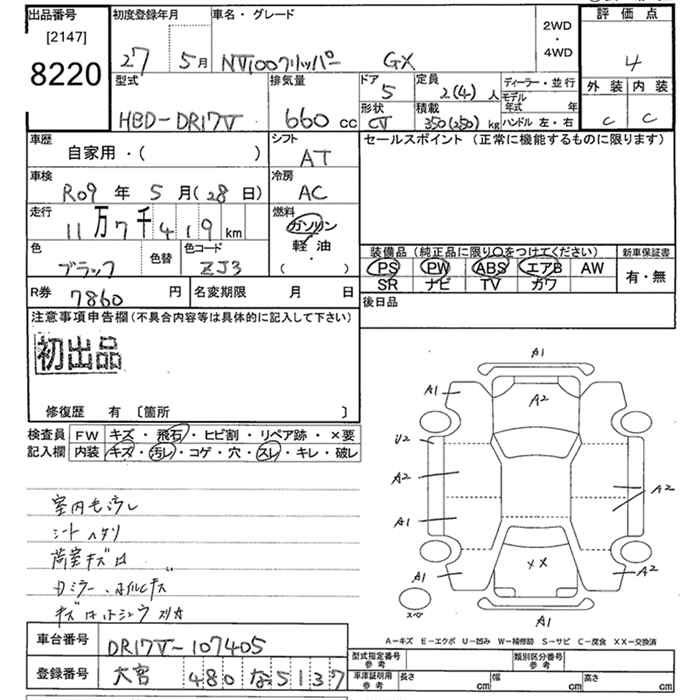 出品番号
[2147]
8220
初度登録年月
27 5月
車名・グレード
NV100クリッパー GX
2WD
・
4WD
評価点
4
外装 内装
C C
型式
HBD-DR17V
排気量
660 cc
ドア
5
形状
CV
定員
2(4)人
積載
350(250)kg
ディーラー・並行
モデル
年式 年
ハンドル 左・右
車歴
自家用・( )
シフト
AT
セールスポイント (正常に機能するものに限ります)
車検
R09 年 5 月(28日)
冷房
AC
走行
11万7千419 km
燃料
ガソリン
軽油
・
( )
色
ブラック
色替
色コード
ZJ3
装備品(純正品に限り〇をつけてください)
PS PW ABS エアB AW
SR ナビ TV カワ
新車保証書
有・無
R券 7860 円
名変期限 月 日
後日品
注意事項申告欄(不具合内容等は具体的に記入して下さい)
初出品
修復歴 有 〔箇所 〕
検査員 FW キズ・飛石・ヒビ割・リペア跡・×要
記入欄 内装 キズ・汚レ・コゲ・穴・スレ・キレ・破レ
室内毛汚レ
シートヘタリ
荷室キズ凹
Dミラー、ホイルCキズ
A1
A1
A2
U2
A2
A1
A2
A1
××
A2
スペア
A1
A-キズ E-エクボ U-凹み W-補修跡 S-サビ C-腐食 XX-交換済
車台番号 DR17V-107405
登録番号 大宮 480 な 5137
型式指定番号
参考
類別区分番号
参考
車庫証明用
参考
長さ cm 幅 cm 高さ cm